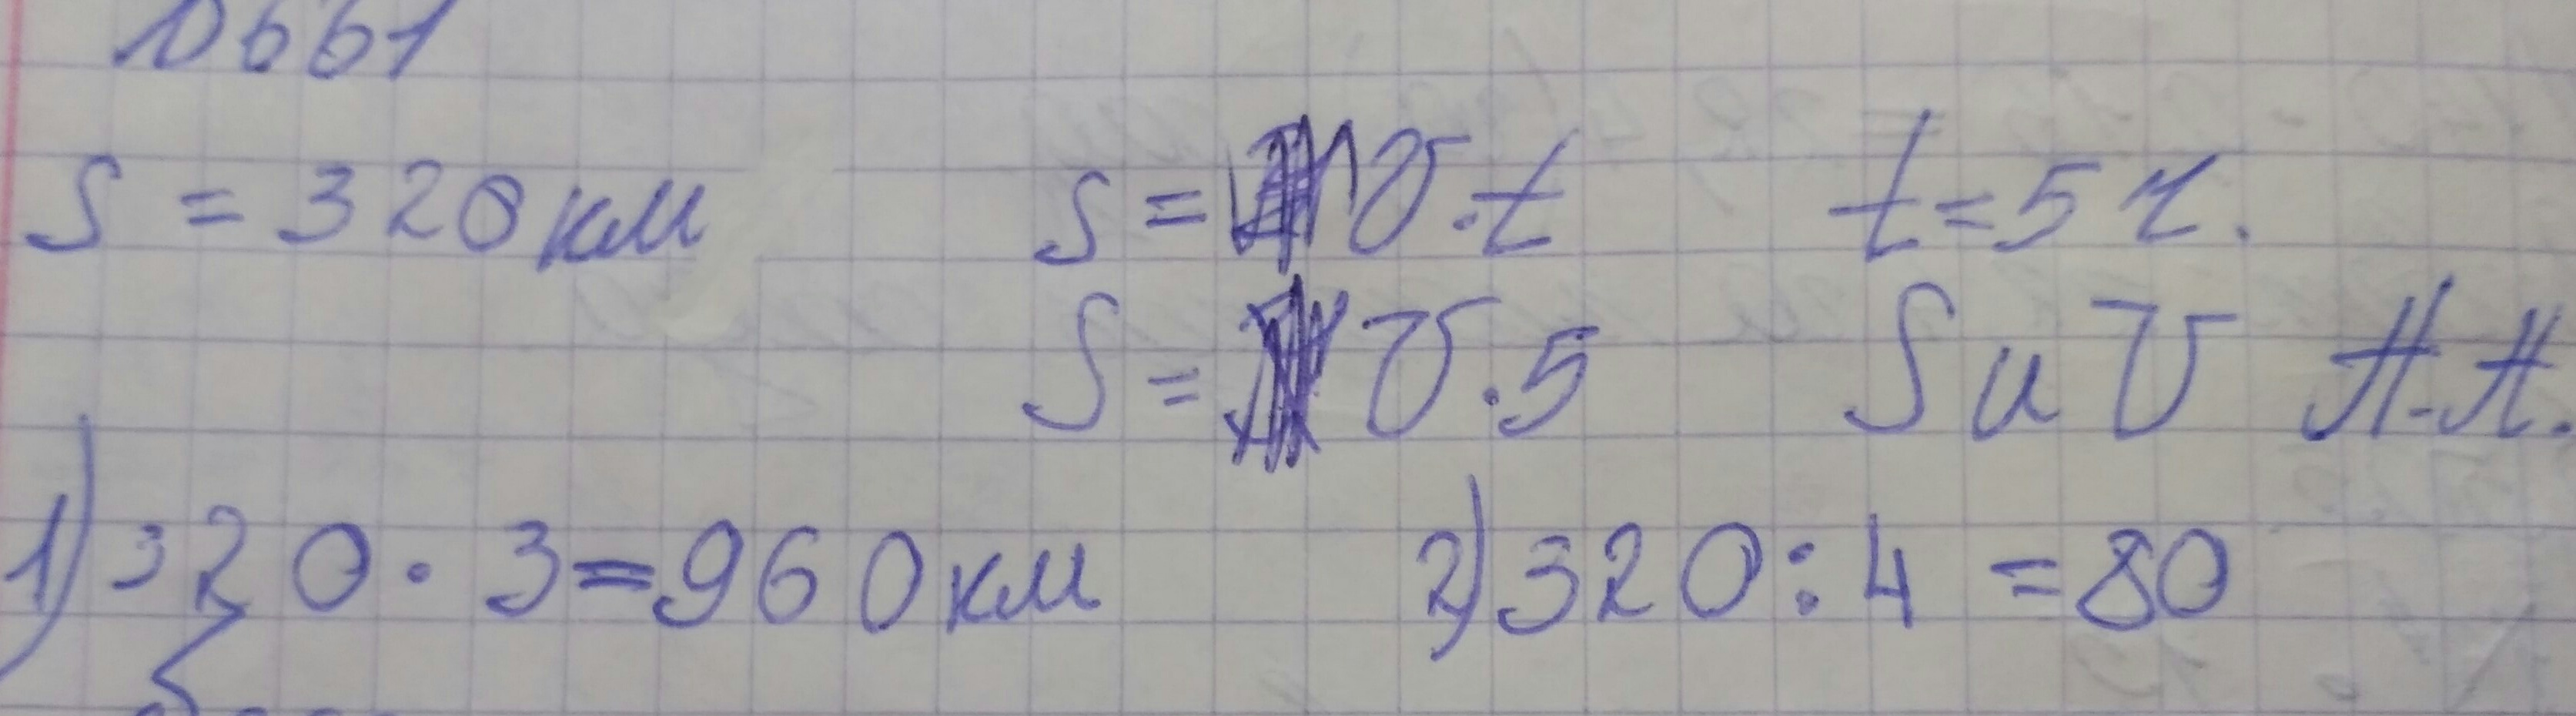 0661
S = 320 км s = v · t t = 5 ч.
S = v · 5 S и v П.П.
1) 320 · 3 = 960 км 2) 320 : 4 = 80